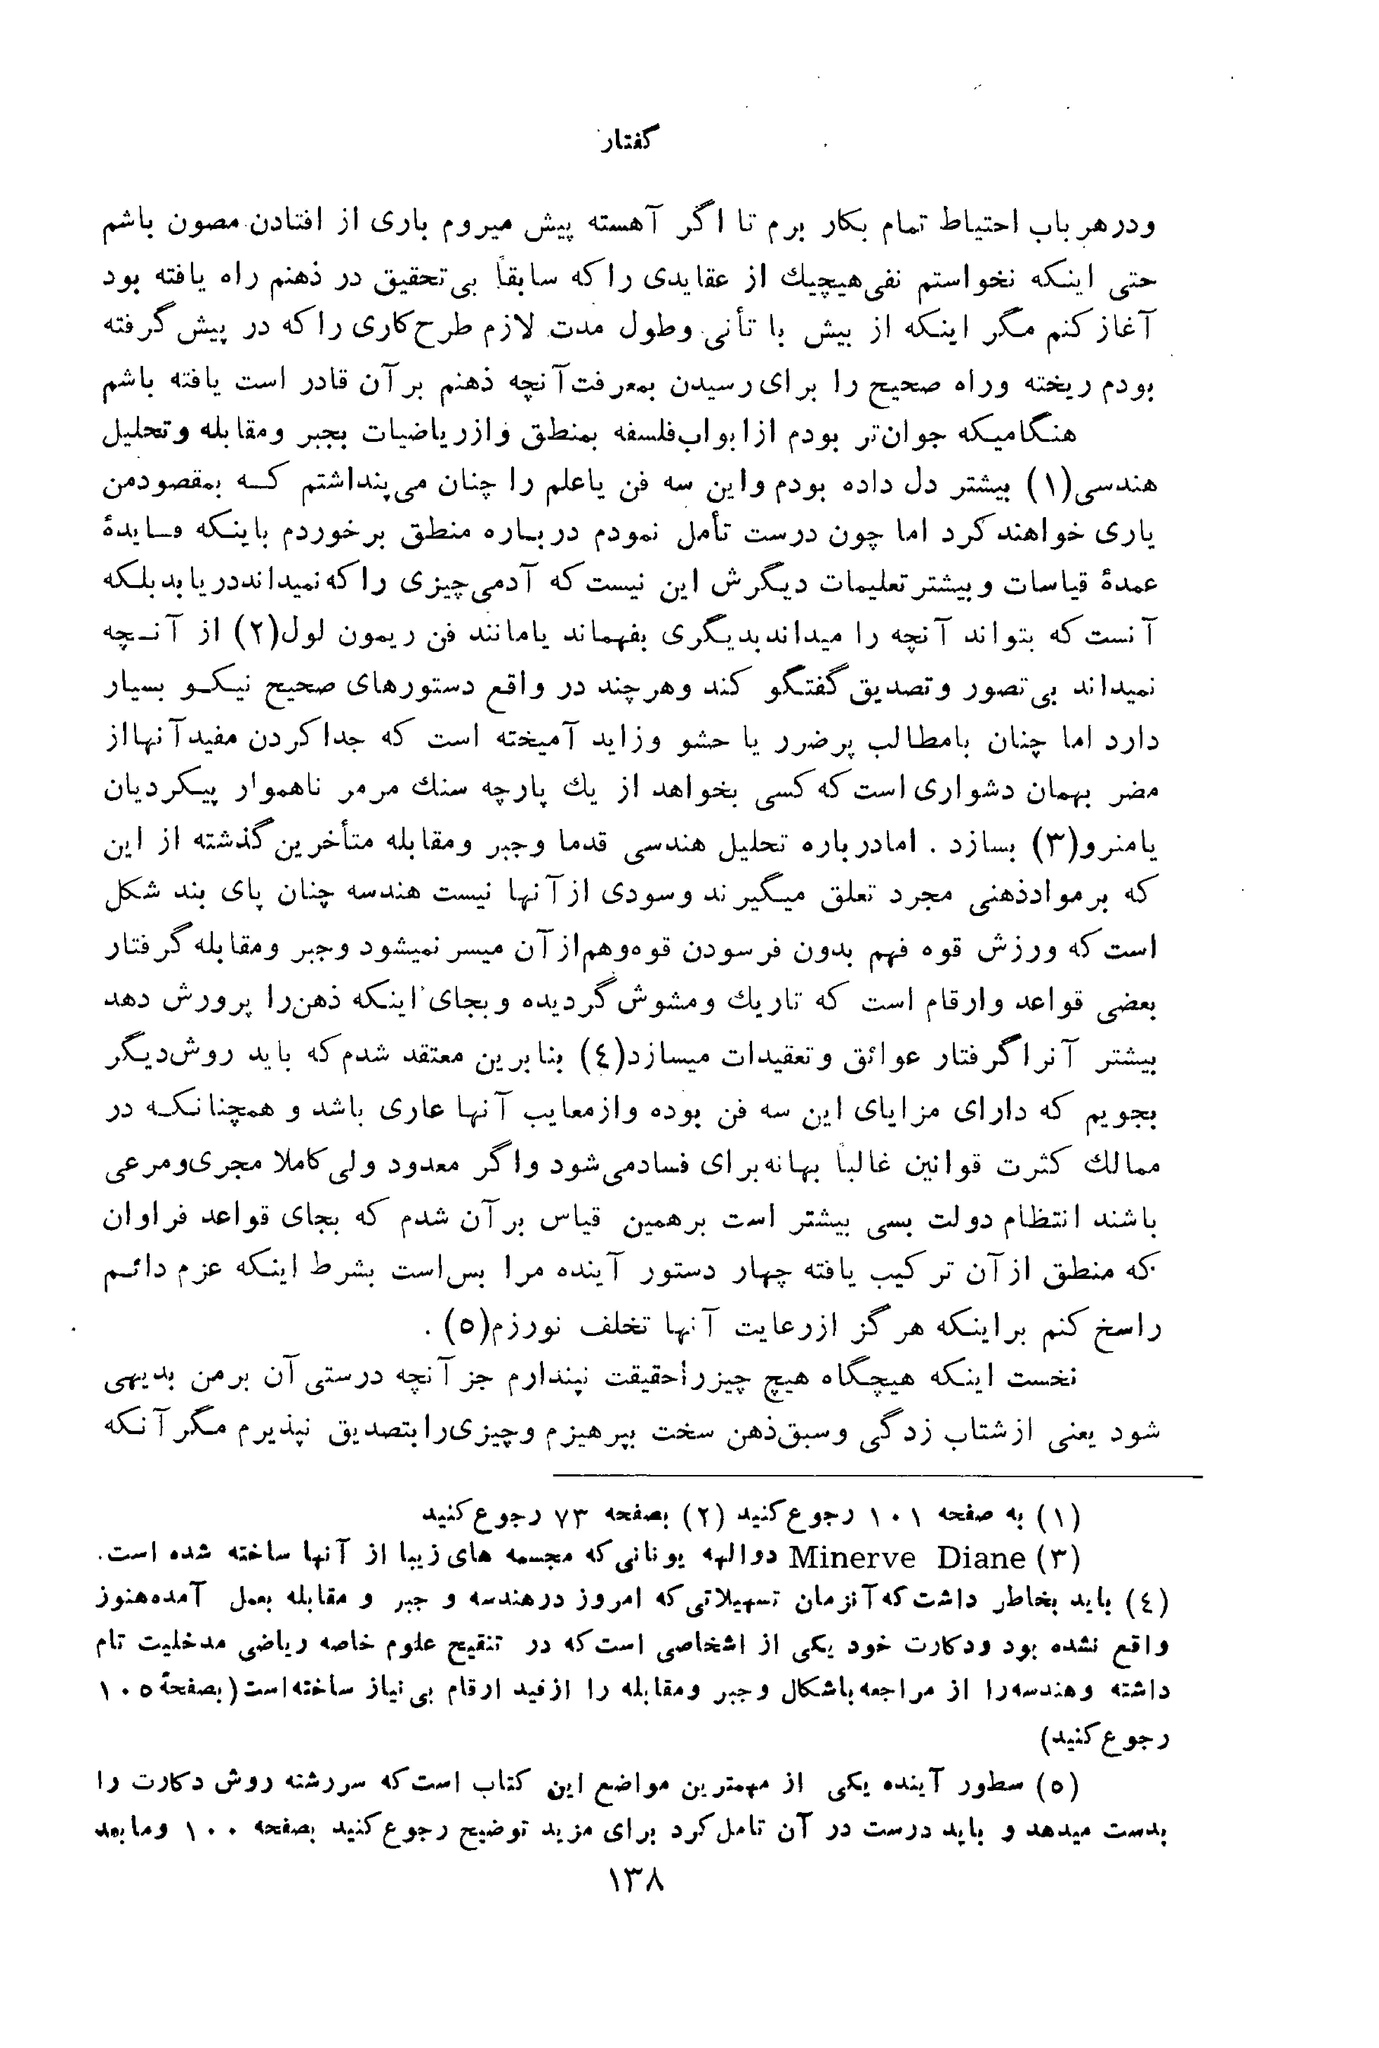 گفتار
ودرهر باب احتیاط تمام بکار برم تا اگر آهسته پیش میروم باری از افتادن مصون باشم
حتی اینکه نخواستم نفی هیچیك از عقایدی را که سابقاً بی تحقیق در ذهنم راه یافته بود
آغاز کنم مگر اینکه از بیش با تأنی وطول مدت لازم طرح کاری را که در پیش گرفته
بودم ریخته وراه صحیح را برای رسیدن بمعرفت آنچه ذهنم بر آن قادر است یافته باشم
هنگامیکه جوان‌تر بودم از ابواب فلسفه بمنطق واز ریاضیات بجبر ومقابله وتحلیل
هندسی(۱) بیشتر دل داده بودم واین سه فن یاعلم را چنان می پنداشتم که بمقصودمن
یاری خواهند کرد اما چون درست تأمل نمودم درباره منطق برخوردم باینکه فایدهٔ
عمدهٔ قیاسات و بیشتر تعلیمات دیگرش این نیست که آدمی چیزی را که نمیداند دریابد بلکه
آنست که بتواند آنچه را میداند بدیگری بفهماند یامانند فن ریمون لول(۲) از آنچه
نمیداند بی تصور وتصدیق گفتگو کند وهرچند در واقع دستورهای صحیح نیکو بسیار
دارد اما چنان بامطالب پرضرر یا حشو وزاید آمیخته است که جدا کردن مفید آنها از
مضر بهمان دشواری است که کسی بخواهد از یك پارچه سنك مرمر ناهموار پیکردیان
یامنرو(۳) بسازد . امادرباره تحلیل هندسی قدما وجبر ومقابله متأخرین گذشته از این
که بر مواد ذهنی مجرد تعلق میگیرند وسودی از آنها نیست هندسه چنان پای بند شکل
است که ورزش قوه فهم بدون فرسودن قوه وهم از آن میسر نمیشود وجبر ومقابله گرفتار
بعضی قواعد وارقام است که تاریك ومشوش گردیده وبجای اینکه ذهن را پرورش دهد
بیشتر آنرا گرفتار عوائق وتعقیدات میسازد(٤) بنابرین معتقد شدم که باید روش دیگر
بجویم که دارای مزایای این سه فن بوده واز معایب آنها عاری باشد و همچنانکه در
ممالك کثرت قوانین غالباً بهانه برای فساد می شود واگر معدود ولی کاملا مجری ومرعی
باشند انتظام دولت بسی بیشتر است برهمین قیاس بر آن شدم که بجای قواعد فراوان
که منطق از آن ترکیب یافته چهار دستور آینده مرا بس است بشرط اینکه عزم دائم
راسخ کنم براینکه هرگز از رعایت آنها تخلف نورزم(٥) .
نخست اینکه هیچگاه هیچ چیز را حقیقت نپندارم جز آنچه درستی آن بر من بدیهی
شود یعنی از شتاب زدگی وسبق ذهن سخت بپرهیزم وچیزی را بتصدیق نپذیرم مگر آنکه
(۱) به صفحه ۱۰۱ رجوع کنید (۲) بصفحه ۷۳ رجوع کنید
(۳) Minerve Diane دوالهه یونانی که مجسمه های زیبا از آنها ساخته شده است.
(٤) باید بخاطر داشت که آنزمان تسهیلاتی که امروز درهندسه و جبر و مقابله بعمل آمده هنوز
واقع نشده بود ودکارت خود یکی از اشخاصی است که در تنقیح علوم خاصه ریاضی مدخلیت تام
داشته وهندسه را از مراجعه باشکال وجبر ومقابله را ازقید ارقام بی نیاز ساخته است (بصفحهٔ ۱۰٥
رجوع کنید)
(٥) سطور آینده یکی از مهمترین مواضع این کتاب است که سررشته روش دکارت را
بدست میدهد و باید درست در آن تامل کرد برای مزید توضیح رجوع کنید بصفحه ۱۰۰ ومابعد
۱۳۸